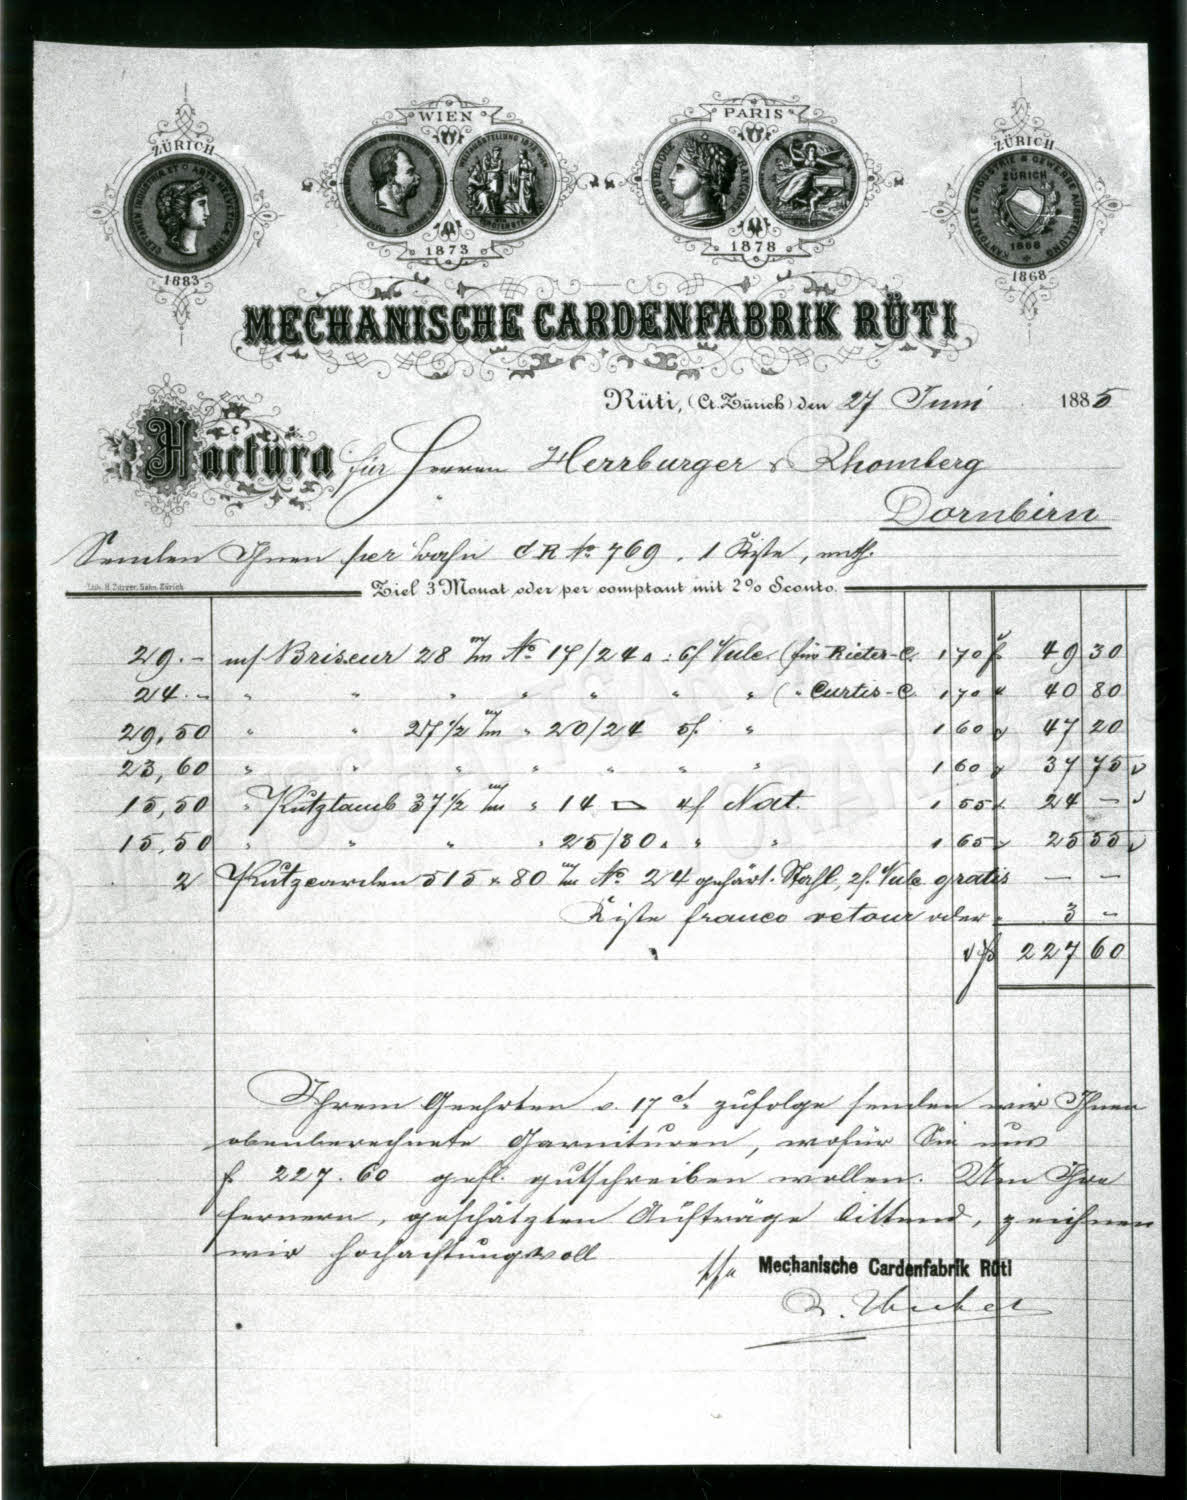 WIEN
PARIS
ZÜRICH
ZÜRICH
1873
1878
1883
1868
MECHANISCHE CARDENFABRIK RÜTI
Rüti, (Ct. Zürich) den 27 Juni 1885
Factura für Herren Herrburger & Rhomberg
Dornbirn
Senden Ihnen per Bahn C R No 769. 1 Kiste, enth.
Lith. H. Zürrer, Sohn, Zürich
Ziel 3 Monat oder per comptant mit 2% Sconto.
29.- m/ Briseur 28 m/m No 17/24 6f Vulc. (für Rieter-C. 1 70 f 49 30
24.- " " " " " " " (" Curtis-C. 1 70 " 40 80
29,50 " " 27 1/2 m/m " 20/24 5f. " 1 60 " 47 20
23,60 " " " " " " " 1 60 " 37 75
15,50 " Putztamb 37 1/2 m/m " 14 4f Nat. 1 55 " 24 -
15,50 " " " " 25/30 " " " 1 65 " 25 55
2 Putzcarden 515 x 80 m/m No 24 gehärt. Stahl, 2f. Vulc gratis - -
Kiste franco retour oder " 3 -
f 227 60
Ihrem Geehrten v. 17 ct. zufolge senden wir Ihnen
obenberechnete Garnituren, wofür Sie uns
f 227.60 gefl. gutschreiben wollen. Um Ihre
fernern, geschätzten Aufträge bittend, zeichnen
wir hochachtungsvoll
ppa Mechanische Cardenfabrik Rüti